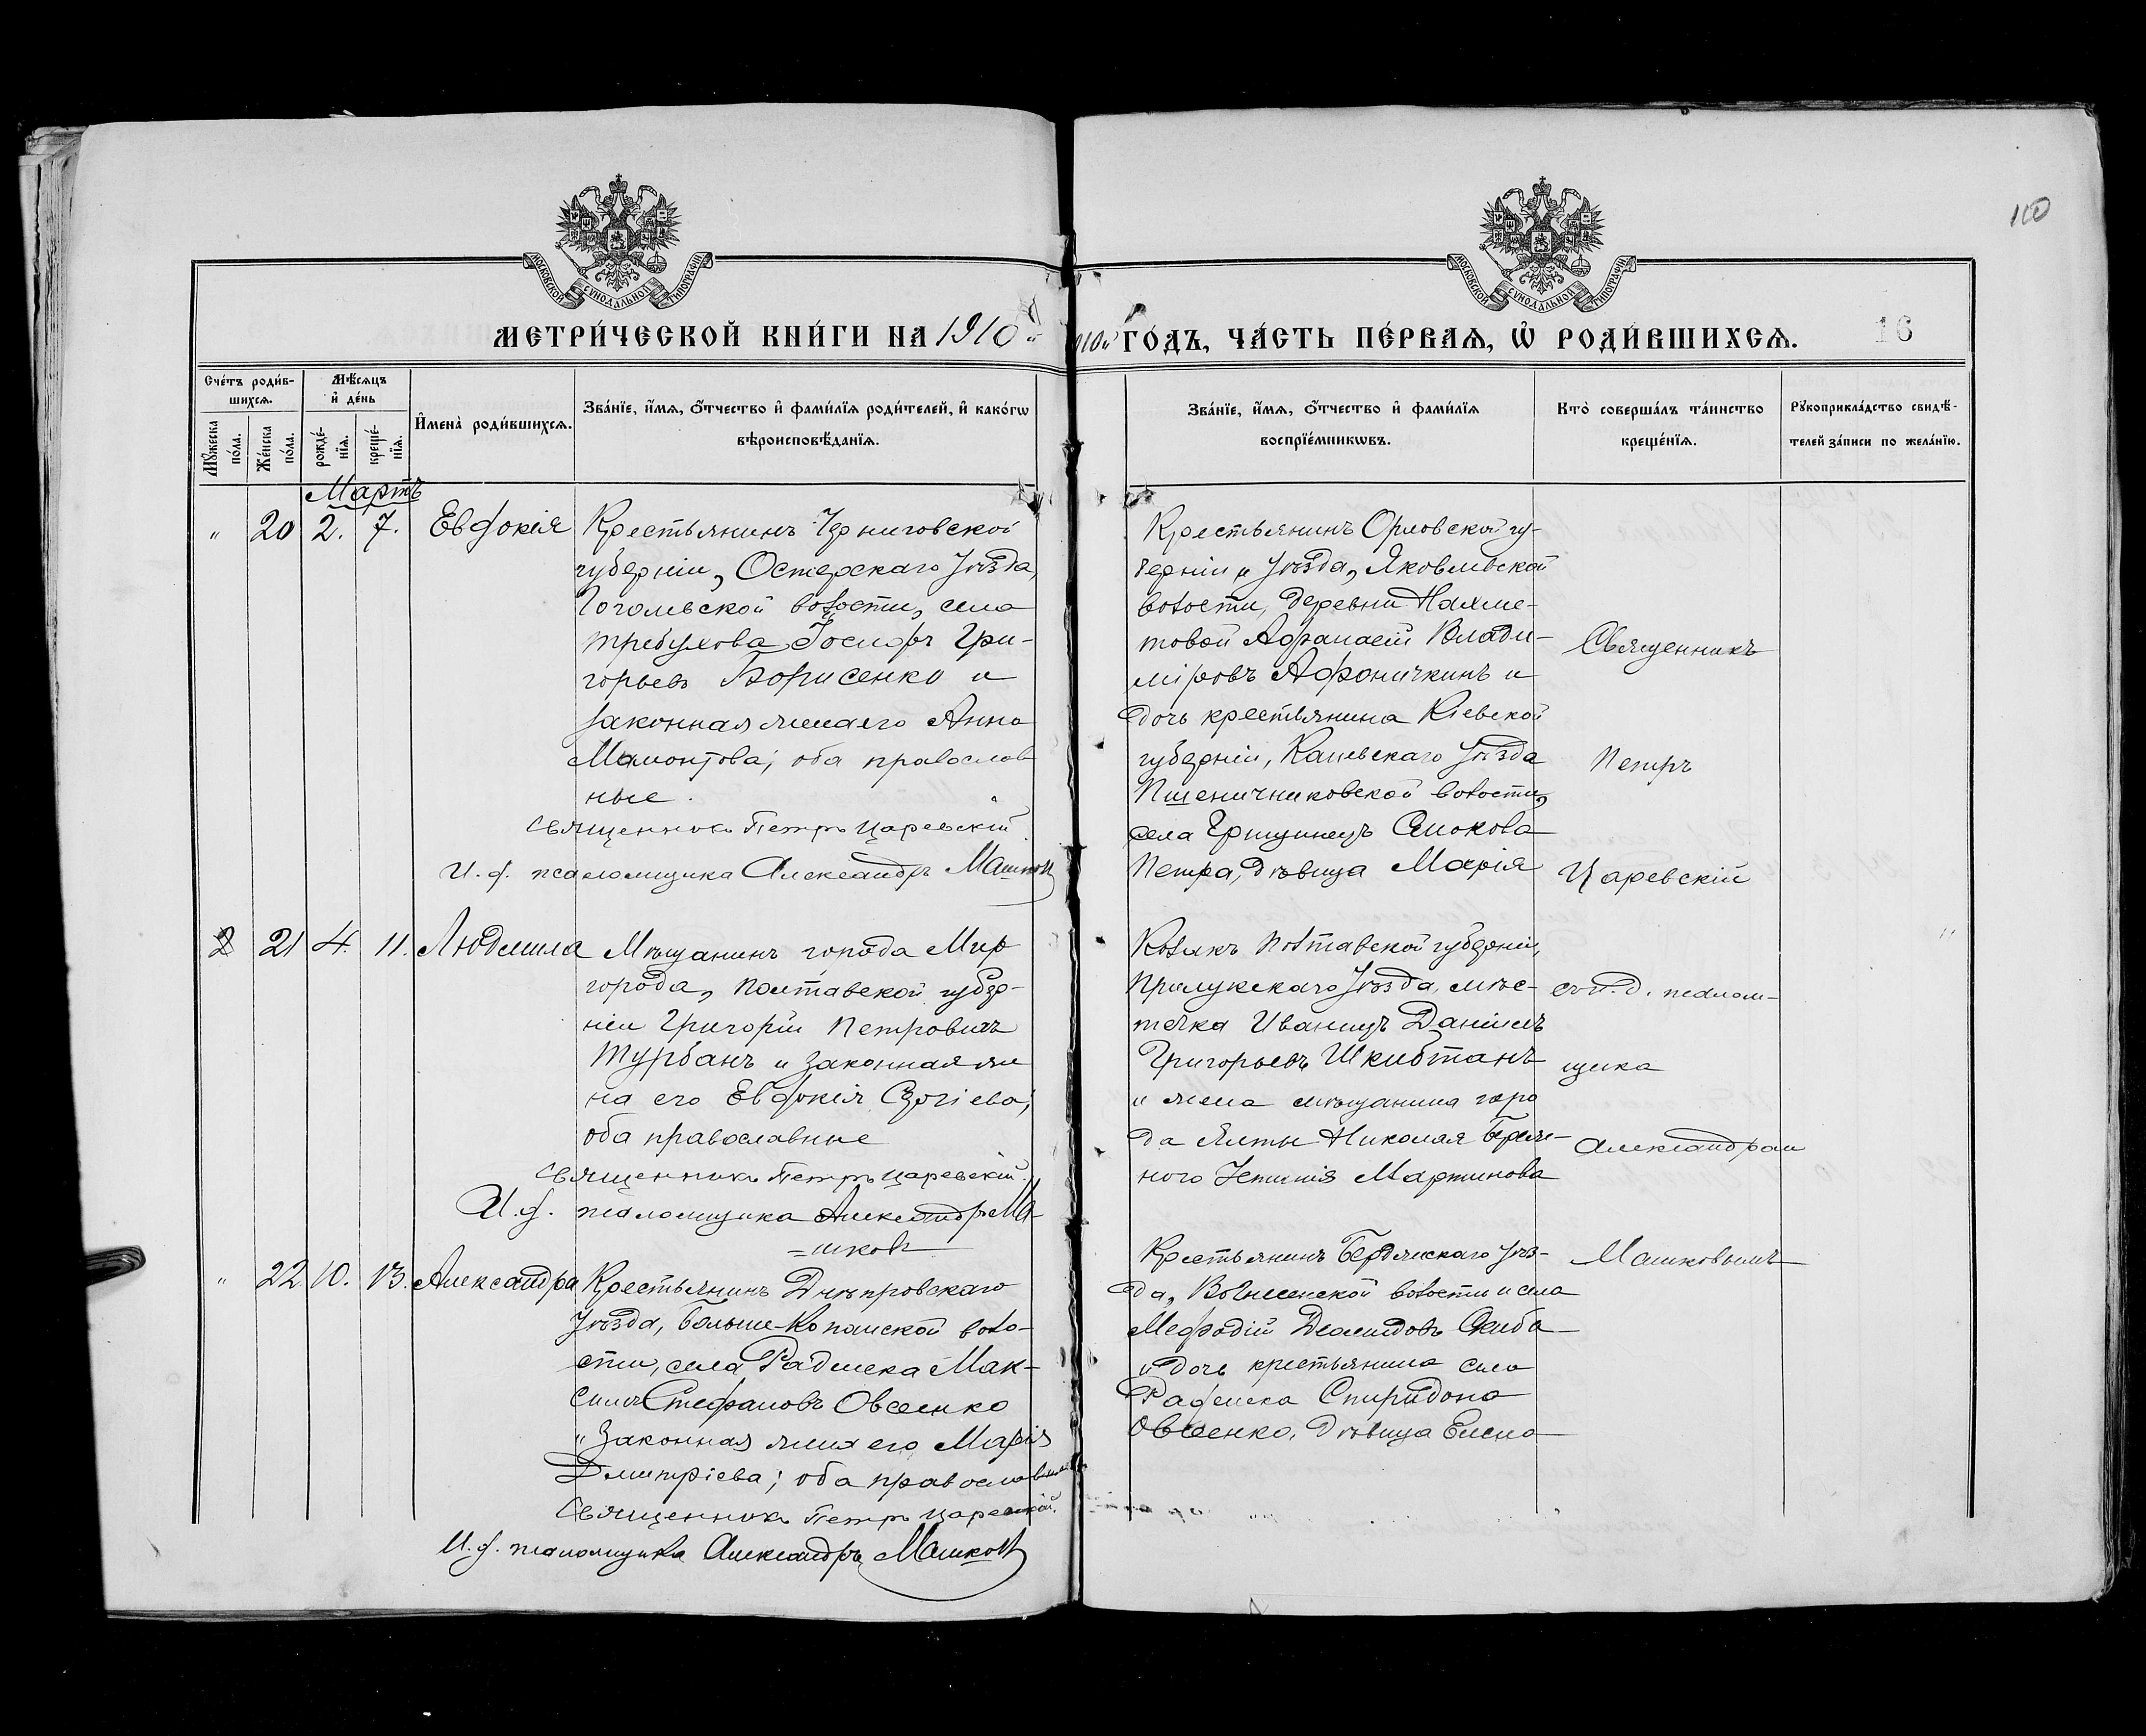 110
МОСКОВСКОЙ СѴНОДАЛЬНОЙ ТИПОГРАФІИ
МОСКОВСКОЙ СѴНОДАЛЬНОЙ ТИПОГРАФІИ
МЕТРИ́ЧЕСКОЙ КНИ́ГИ НА 1910й
1910й ГО́ДЪ, ЧА́СТЬ ПЕ́РВАѦ, Ѡ҆ РОДИ́ВШИХСѦ.
16
Сче́тъ роди́в-
шихсѧ.
Мꙋ́жеска
по́ла.
Же́нска
по́ла.
Мѣ́сѧцъ
и҆ де́нь
рожде́-
нїѧ.
креще́-
нїѧ.
И҆мена̀ роди́вшихсѧ.
Зва́нїе, и҆́мѧ, ѻ҆́тчество и҆ фами́лїѧ роди́телей, и҆ како́гѡ
вѣроисповѣ́данїѧ.
Зва́нїе, и҆́мѧ, ѻ҆́тчество и҆ фами́лїѧ
воспрїе́мникѡвъ.
Кто̀ соверша́лъ та́инство
креще́нїѧ.
Рꙋкоприкла́дство свидѣ́-
телей за́писи по жела́нїю.
Мартъ
" 20 2. 7. Евдокія
Крестьянинъ Черниговской
губерніи, Остерскаго Уѣзда,
Гоголевской волости, села
Требухова Іосифъ Гри-
горьевъ Борисенко и
законная жена его Анна
Мамонтова; оба православ
ные.
Священникъ Петръ Царевскій
И. д. псаломщика Александръ Машковъ
Крестьянинъ Орловской гу-
берніи и Уѣзда, Яковлевской
волости, деревни
товой Афанасій Влади-
міровъ Афоничкинъ и
дочь крестьянина Кіевской
губерніи, Каневскаго Уѣзда
Пшеничниковской волости,
села Грищинецъ
Петра, дѣвица Марія
Священникъ
Петръ
Царевскій
2 21 4. 11. Людмила
Мѣщанинъ города Мир
города, Полтавской губер-
ніи Григорій Петровичъ
Турбанъ и законная же
на его Евдокія Сергіева;
оба православные
Священникъ Петръ Царевскій.
И. д. псаломщика Александръ Ма-
=шковъ
Козакъ Полтавской губерніи,
Прилукскаго Уѣзда, мѣс-
течка Иваницъ Даніилъ
Григорьевъ Шкибтанъ
и жена мѣщанина горо
да Ялты Николая
ного Мартинова
съ и. д. псалом-
щика
Александромъ
Машковымъ
"
" 22 10. 13. Александра
Крестьянинъ Днѣпровскаго
Уѣзда, Больше-Копанской воло-
сти, села Раденска Мак-
симъ Стефановъ Овсеенко
и законная жена его Марія
Дмитріева; оба православные
Священникъ Петръ Царевскій.
И. д. псаломщика Александръ Машковъ
Крестьянинъ Бердянскаго уѣз-
да, Вознесенской волости и села
Мефодій Демидовъ Скиба
и дочь крестьянина села
Раденска Спиридона
Овсеенко, дѣвица Елена